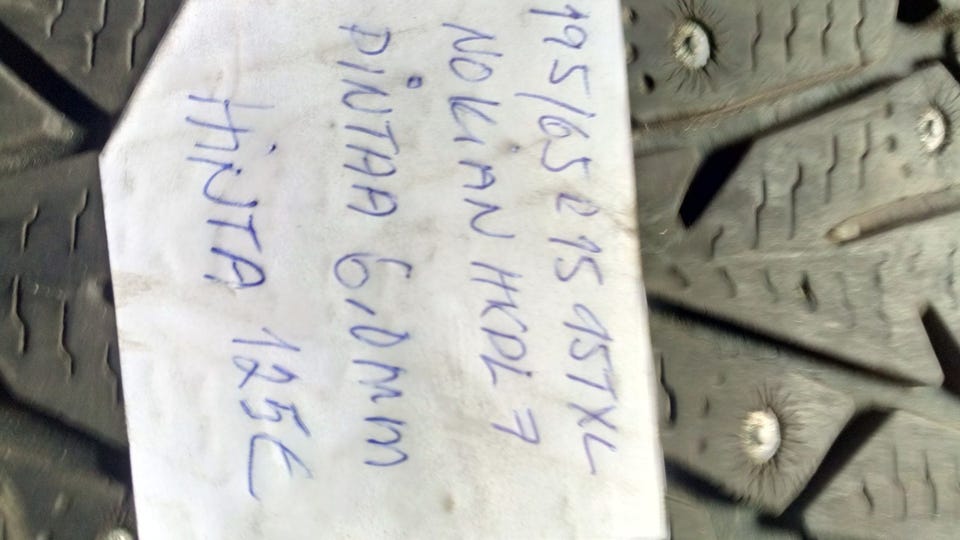 195/65 R15 95T XL
NOKIAN HKPL 7
PINTAA 6,0mm
HINTA 125€